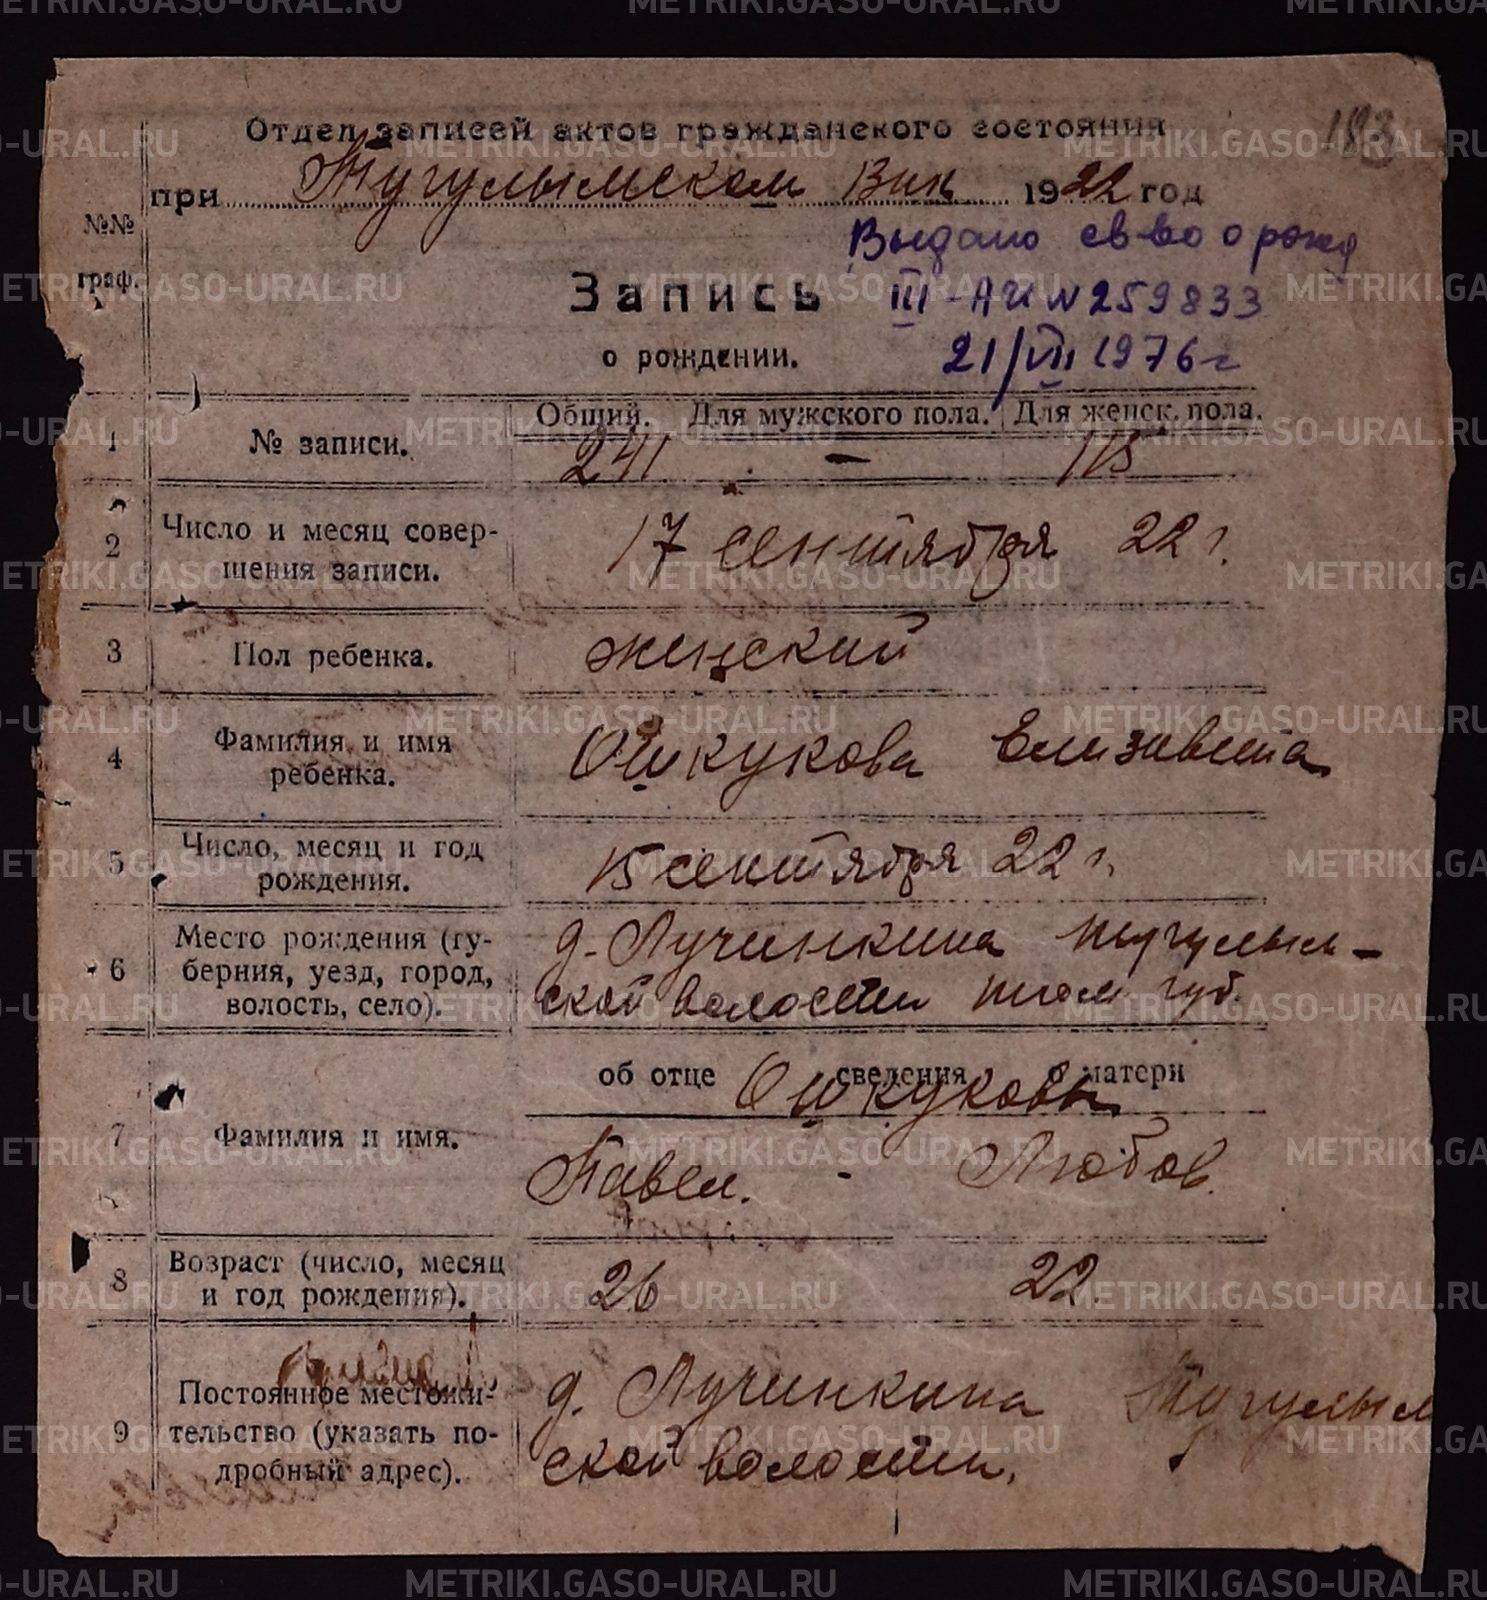 183
Отдел записей актов гражданского состояния
при Тугулымском Вик 1922 год
№№ граф.
Выдано св-во о рожд
III-АИ N 259833
21/VII 1976 г
Запись
о рождении.
Общий. Для мужского пола. Для женск. пола.
1 № записи. 241 - 115
2 Число и месяц совер-
шения записи. 17 сентября 22 г.
3 Пол ребенка. женский
4 Фамилия и имя
ребенка. Ошкукова Елизавета
5 Число, месяц и год
рождения. 15 сентября 22 г.
6 Место рождения (гу-
берния, уезд, город,
волость, село). д. Лучинкина Тугулым-
ской волости тюм губ.
об отце сведения о матери
Ошкуковы
7 Фамилия и имя. Павел. - Любов.
8 Возраст (число, месяц
и год рождения). 26 22.
9 Постоянное местожи-
тельство (указать по-
дробный адрес). д. Лучинкина Тугулым
ской волости.
METRIKI.GASO-URAL.RU